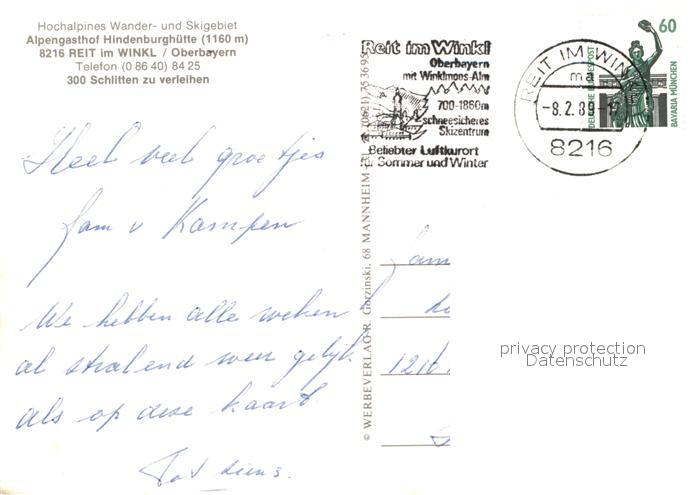 Hochalpines Wander- und Skigebiet
Alpengasthof Hindenburghütte (1160 m)
8216 REIT im WINKL / Oberbayern
Telefon (0 86 40) 84 25
300 Schlitten zu verleihen
Heel veel groetjes
fam v Kampen
We hebben alle weken
al stralend weer gelijk
als op deze kaart
Tot ziens.
© WERBEVERLAG R. Gorzinski, 68 MANNHEIM (0621) 75 36 95
Reit im Winkl
Oberbayern
mit Winklmoos-Alm
700-1860m
schneesicheres
Skizentrum
Beliebter Luftkurort
für Sommer und Winter
REIT IM WINKL
ma
-8.2.89-
8216
60
DEUTSCHE BUNDESPOST
BAVARIA MÜNCHEN
fam
1216
privacy protection
Datenschutz